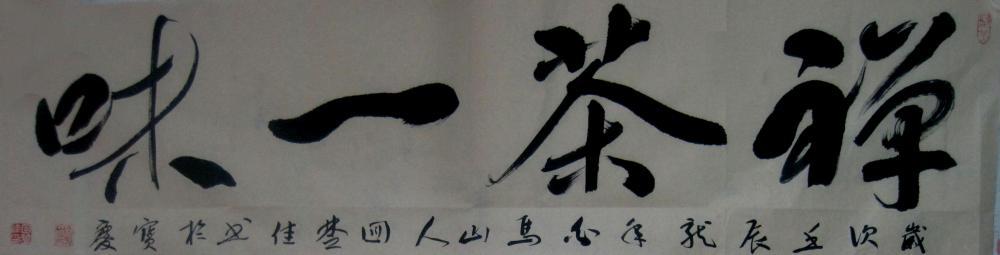 禅茶一味
歲次壬辰龍年白馬山人回楚佳书於寶慶